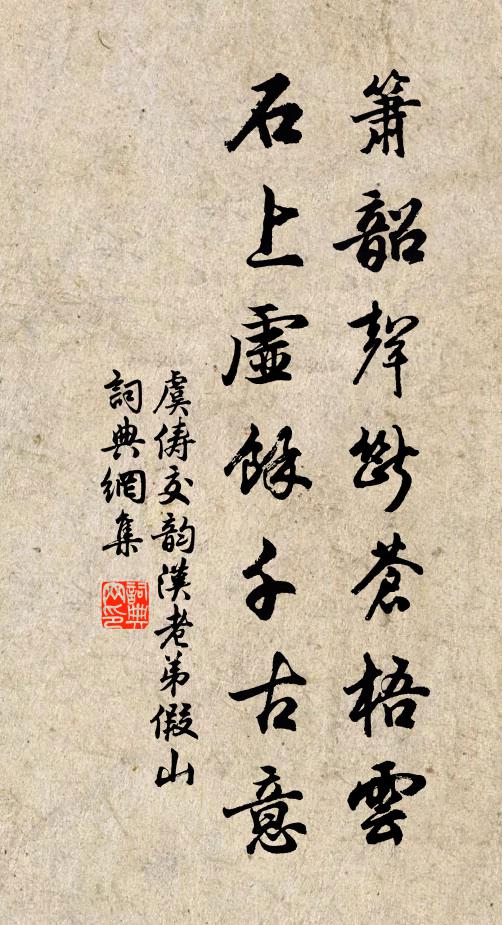 簫韶聲斷蒼梧雲
石上虛餘千古意
虞儔交韵漢老弟假山
詞典網集
詞典网印